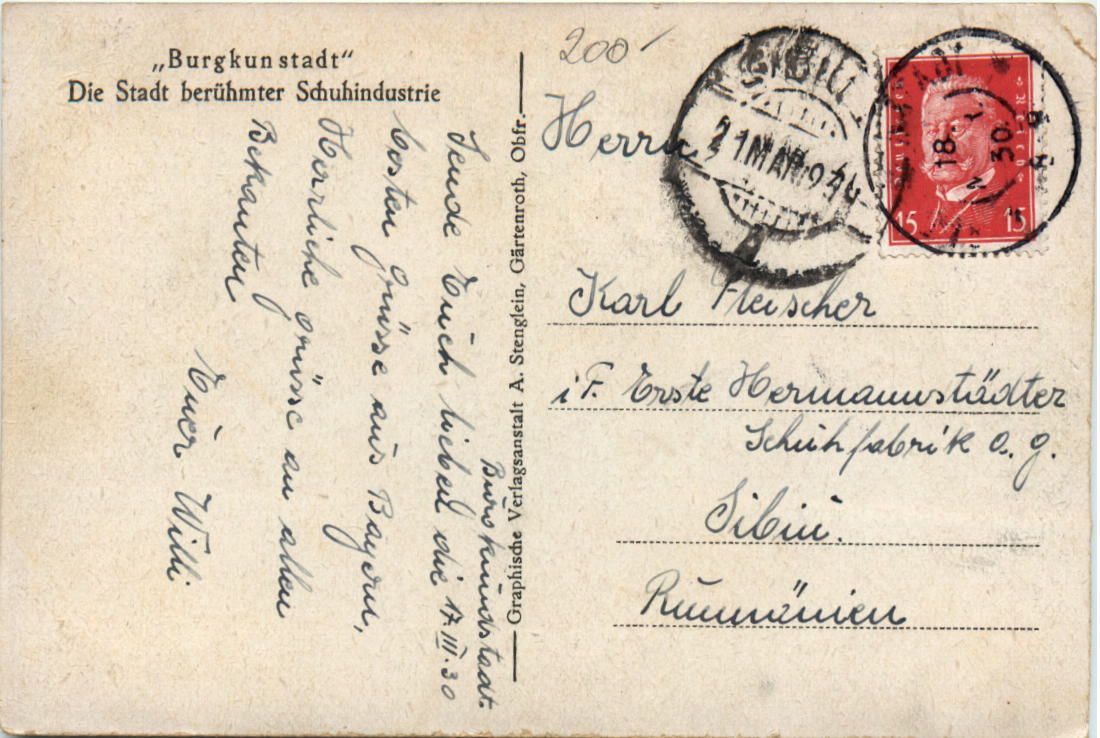 „Burgkunstadt“
Die Stadt berühmter Schuhindustrie
Burgkundstadt.
17 III. 30
Sende Euch lieben die
besten Grüsse aus Bayern,
Herrliche Grüsse an allen
Bekanten
Euer Willi
Graphische Verlagsanstalt A. Stenglein, Gärtenroth, Obfr.
200
Herrn
Karl Fleischer
i F. Erste Hermannstädter
Schuhfabrik a. g.
Sibiu.
Rumänien
SIBIU
21 MAR
Deutsches Reich
15 15
18.
30.